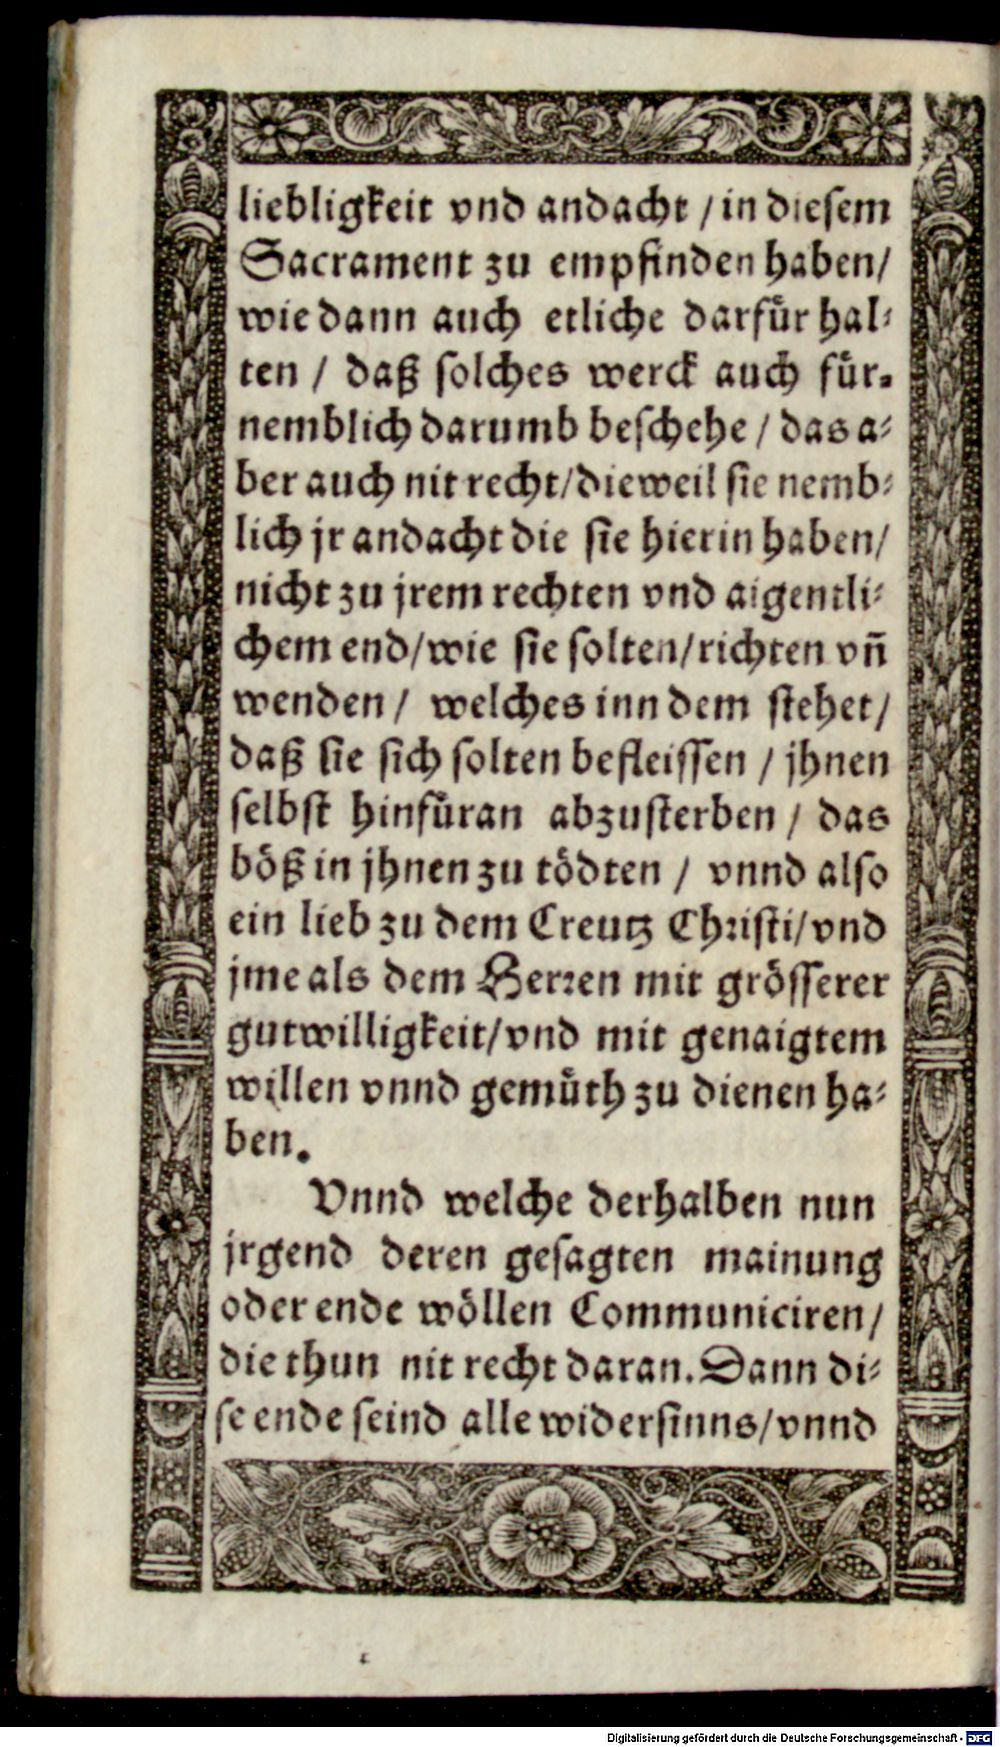 liebligkeit vnd andacht / in diesem
Sacrament zu empfinden haben/
wie dann auch etliche darfuͤr hal⸗
ten / daß solches werck auch fuͤr⸗
nemblich darumb beschehe / das a⸗
ber auch nit recht/dieweil sie nemb⸗
lich jr andacht die sie hierin haben/
nicht zu jrem rechten vnd aigentli⸗
chem end/wie sie solten/richten vñ
wenden / welches inn dem stehet/
daß sie sich solten befleissen / jhnen
selbst hinfuͤran abzusterben / das
böß in jhnen zu tödten / vnnd also
ein lieb zu dem Creutz Christi/vnd
jme als dem Herren mit grösserer
gutwilligkeit/vnd mit genaigtem
willen vnnd gemuͤth zu dienen ha⸗
ben.
Vnnd welche derhalben nun
jrgend deren gesagten mainung
oder ende wöllen Communiciren/
die thun nit recht daran. Dann di⸗
se ende seind alle widersinns/vnnd
Digitalisierung gefördert durch die Deutsche Forschungsgemeinschaft - DFG